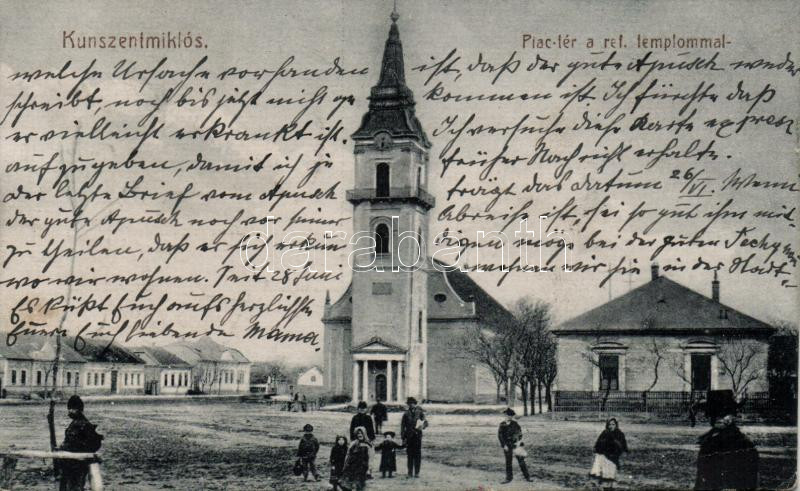 Kunszentmiklós.
Piac-tér a ref. templommal-
welche Ursache vorhanden ist, daß der gute Apusch weder
schreibt, noch bis jetzt nicht ge kommen ist. Ich fürchte daß
er vielleicht erkrankt ist. Ich versuche diese Karte express
aufzugeben, damit ich je früher Nachricht erhalte.
der letzte Brief vom Apusch trägt das datum 26/VI. Wenn
der gute Apusch noch vor seiner Abreise ist, sei so gut ihm mit
zu theilen, daß er sich erkun digen möge bei der guten
wo wir wohnen. Seit 28 Juni wohnen wir sie in der Stadt
Es küßt Euch aufs herzlichste
Euere Euch liebende Mama.
darabanth.com